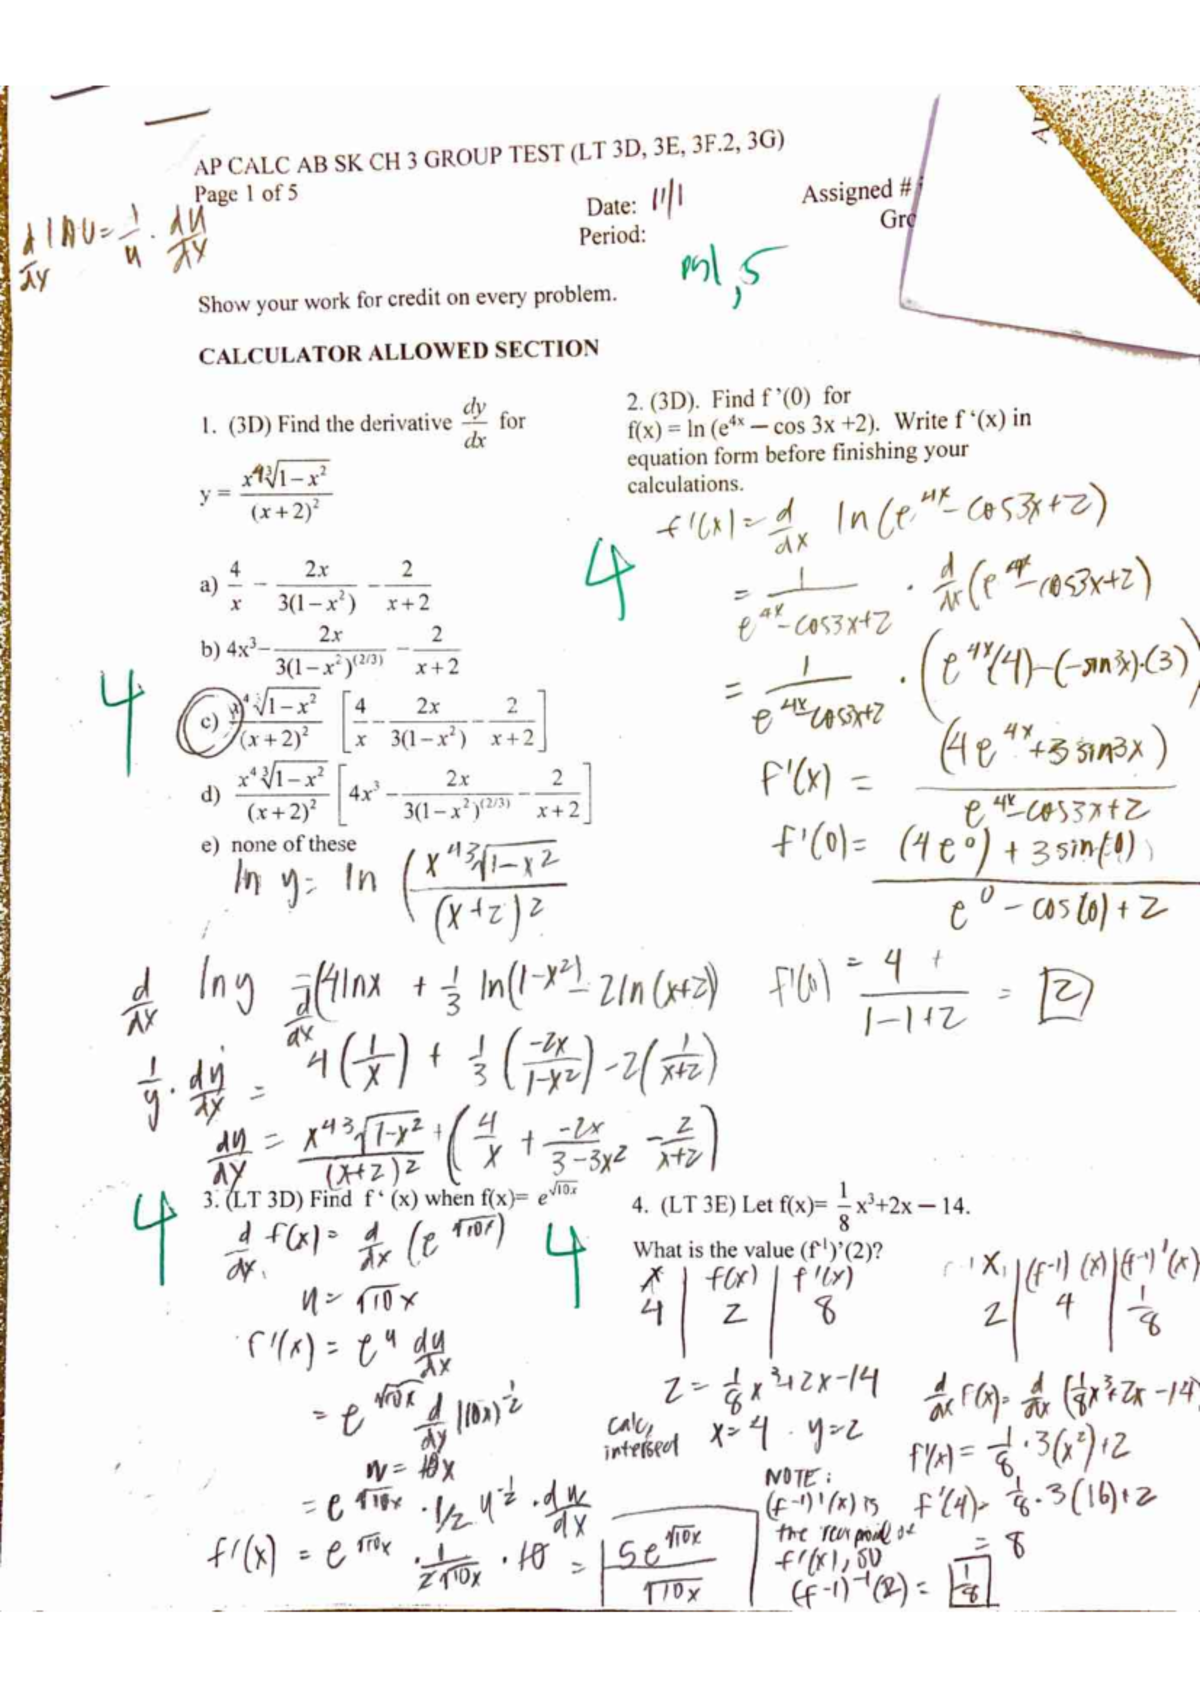 AP CALC AB SK CH 3 GROUP TEST (LT 3D, 3E, 3F.2, 3G)
Page 1 of 5
Date: 11/1
Assigned #
Period:
d/dx ln u = 1/u · du/dx
Show your work for credit on every problem.
CALCULATOR ALLOWED SECTION
1. (3D) Find the derivative dy/dx for
y = x⁴∛(1 – x²) / (x + 2)²
a) 4/x – 2x/3(1 – x²) – 2/(x + 2)
b) 4x³ – 2x/3(1 – x²)^(2/3) – 2/(x + 2)
c) x⁴∛(1 – x²)/(x + 2)² [4/x – 2x/3(1 – x²) – 2/(x + 2)]
d) x⁴∛(1 – x²)/(x + 2)² [4x³ – 2x/3(1 – x²)^(2/3) – 2/(x + 2)]
e) none of these
4
ln y = ln (x⁴∛(1-x²) / (x+2)²)
d/dx ln y = d/dx (4lnx + 1/3 ln(1-x²) - 2ln(x+2))
1/y · dy/dx = 4(1/x) + 1/3 (-2x/1-x²) - 2(1/x+2)
dy/dx = x⁴∛(1-x²)/(x+2)² (4/x + -2x/3-3x² - 2/x+2)
2. (3D). Find f '(0) for
f(x) = ln (e⁴ˣ — cos 3x +2). Write f '(x) in
equation form before finishing your
calculations.
4
f'(x) = d/dx ln(e⁴ˣ - cos3x+2)
= 1/e⁴ˣ-cos3x+2 · d/dx (e⁴ˣ-cos3x+2)
= 1/e⁴ˣ-cos3x+2 · (e⁴ˣ(4)-(-sin3x)·(3)
f'(x) = (4e⁴ˣ+3sin3x) / e⁴ˣ-cos3x+2
f'(0) = (4e⁰) + 3sin(0) / e⁰ - cos(0) + 2
f'(0) = 4 / 1-1+2 = 2
3. (LT 3D) Find f ' (x) when f(x)= e^√10x
4
d/dx f(x) = d/dx (e^√10x)
u = √10x
f'(x) = e^u du/dx
w = 10x
f'(x) = e^√10x · 1/2√10x · 10 = 5e^√10x / √10x
4. (LT 3E) Let f(x)= 1/8 x³+2x — 14.
What is the value (f⁻¹)'(2)?
4
x | f(x) | f'(x)
4 | 2 | 8
x | (f-1)(x) | (f-1)'(x)
2 | 4 | 1/8
2 = 1/8 x³+2x-14
calc,
intersect
x=4 y=2
d/dx f(x) = d/dx (1/8x³+2x -14
f'(x) = 1/8 · 3(x²)+2
f'(4) = 1/8 · 3(16)+2
= 8
NOTE:
(f-1)'(x) is
f'(x), so
(f-1)⁻¹(2) = 1/8